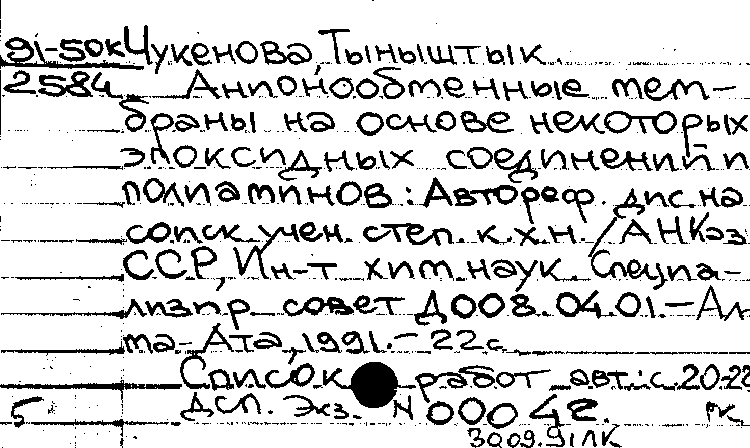 91-50к Чукенова, Тыныштык.
2584 Анионообменные мем-
браны на основе некоторых
эпоксидных соединений и
полиаминов: Автореф. дис. на
соиск. учен. степ. к.х.н. / АН Каз
ССР, Ин-т хим. наук. Специа-
лизир. совет Д 008.04.01. – Ал
ма-Ата, 1991. – 22 с.
Список работ авт.: с. 20-22
5 ДСП. Экз. N 00042. РК
30.09.91 ЛК